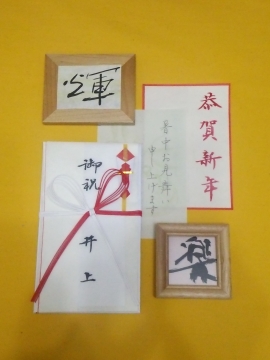 輝
恭賀新年
暑中お見舞い
申し上げます
御祝
井上
楽